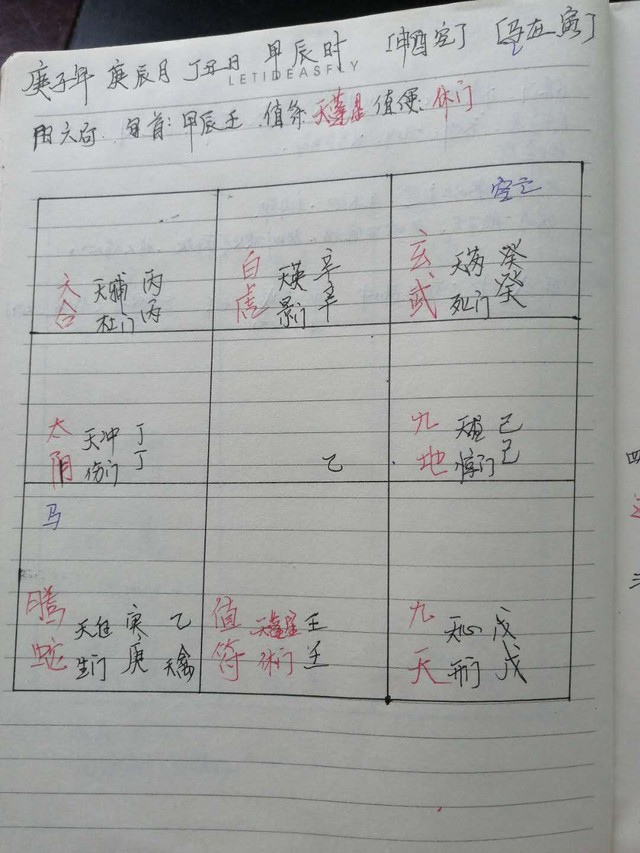 庚子年 庚辰月 丁丑日 甲辰时 [申酉空] [马在寅]
LETIDEASFLY
阴六局 旬首:甲辰壬 值符:天蓬星 值使:休门
空亡
六合 天辅 丙
杜门 丙
白虎 天英 辛
景门 辛
玄武 天芮 癸
死门 癸
太阴 天冲 丁
伤门 丁
乙
九地 天柱 己
惊门 己
马
腾蛇 天任 庚 乙
生门 庚 天禽
值符 天蓬星 壬
休门 壬
九天 天心 戊
开门 戊
四
三